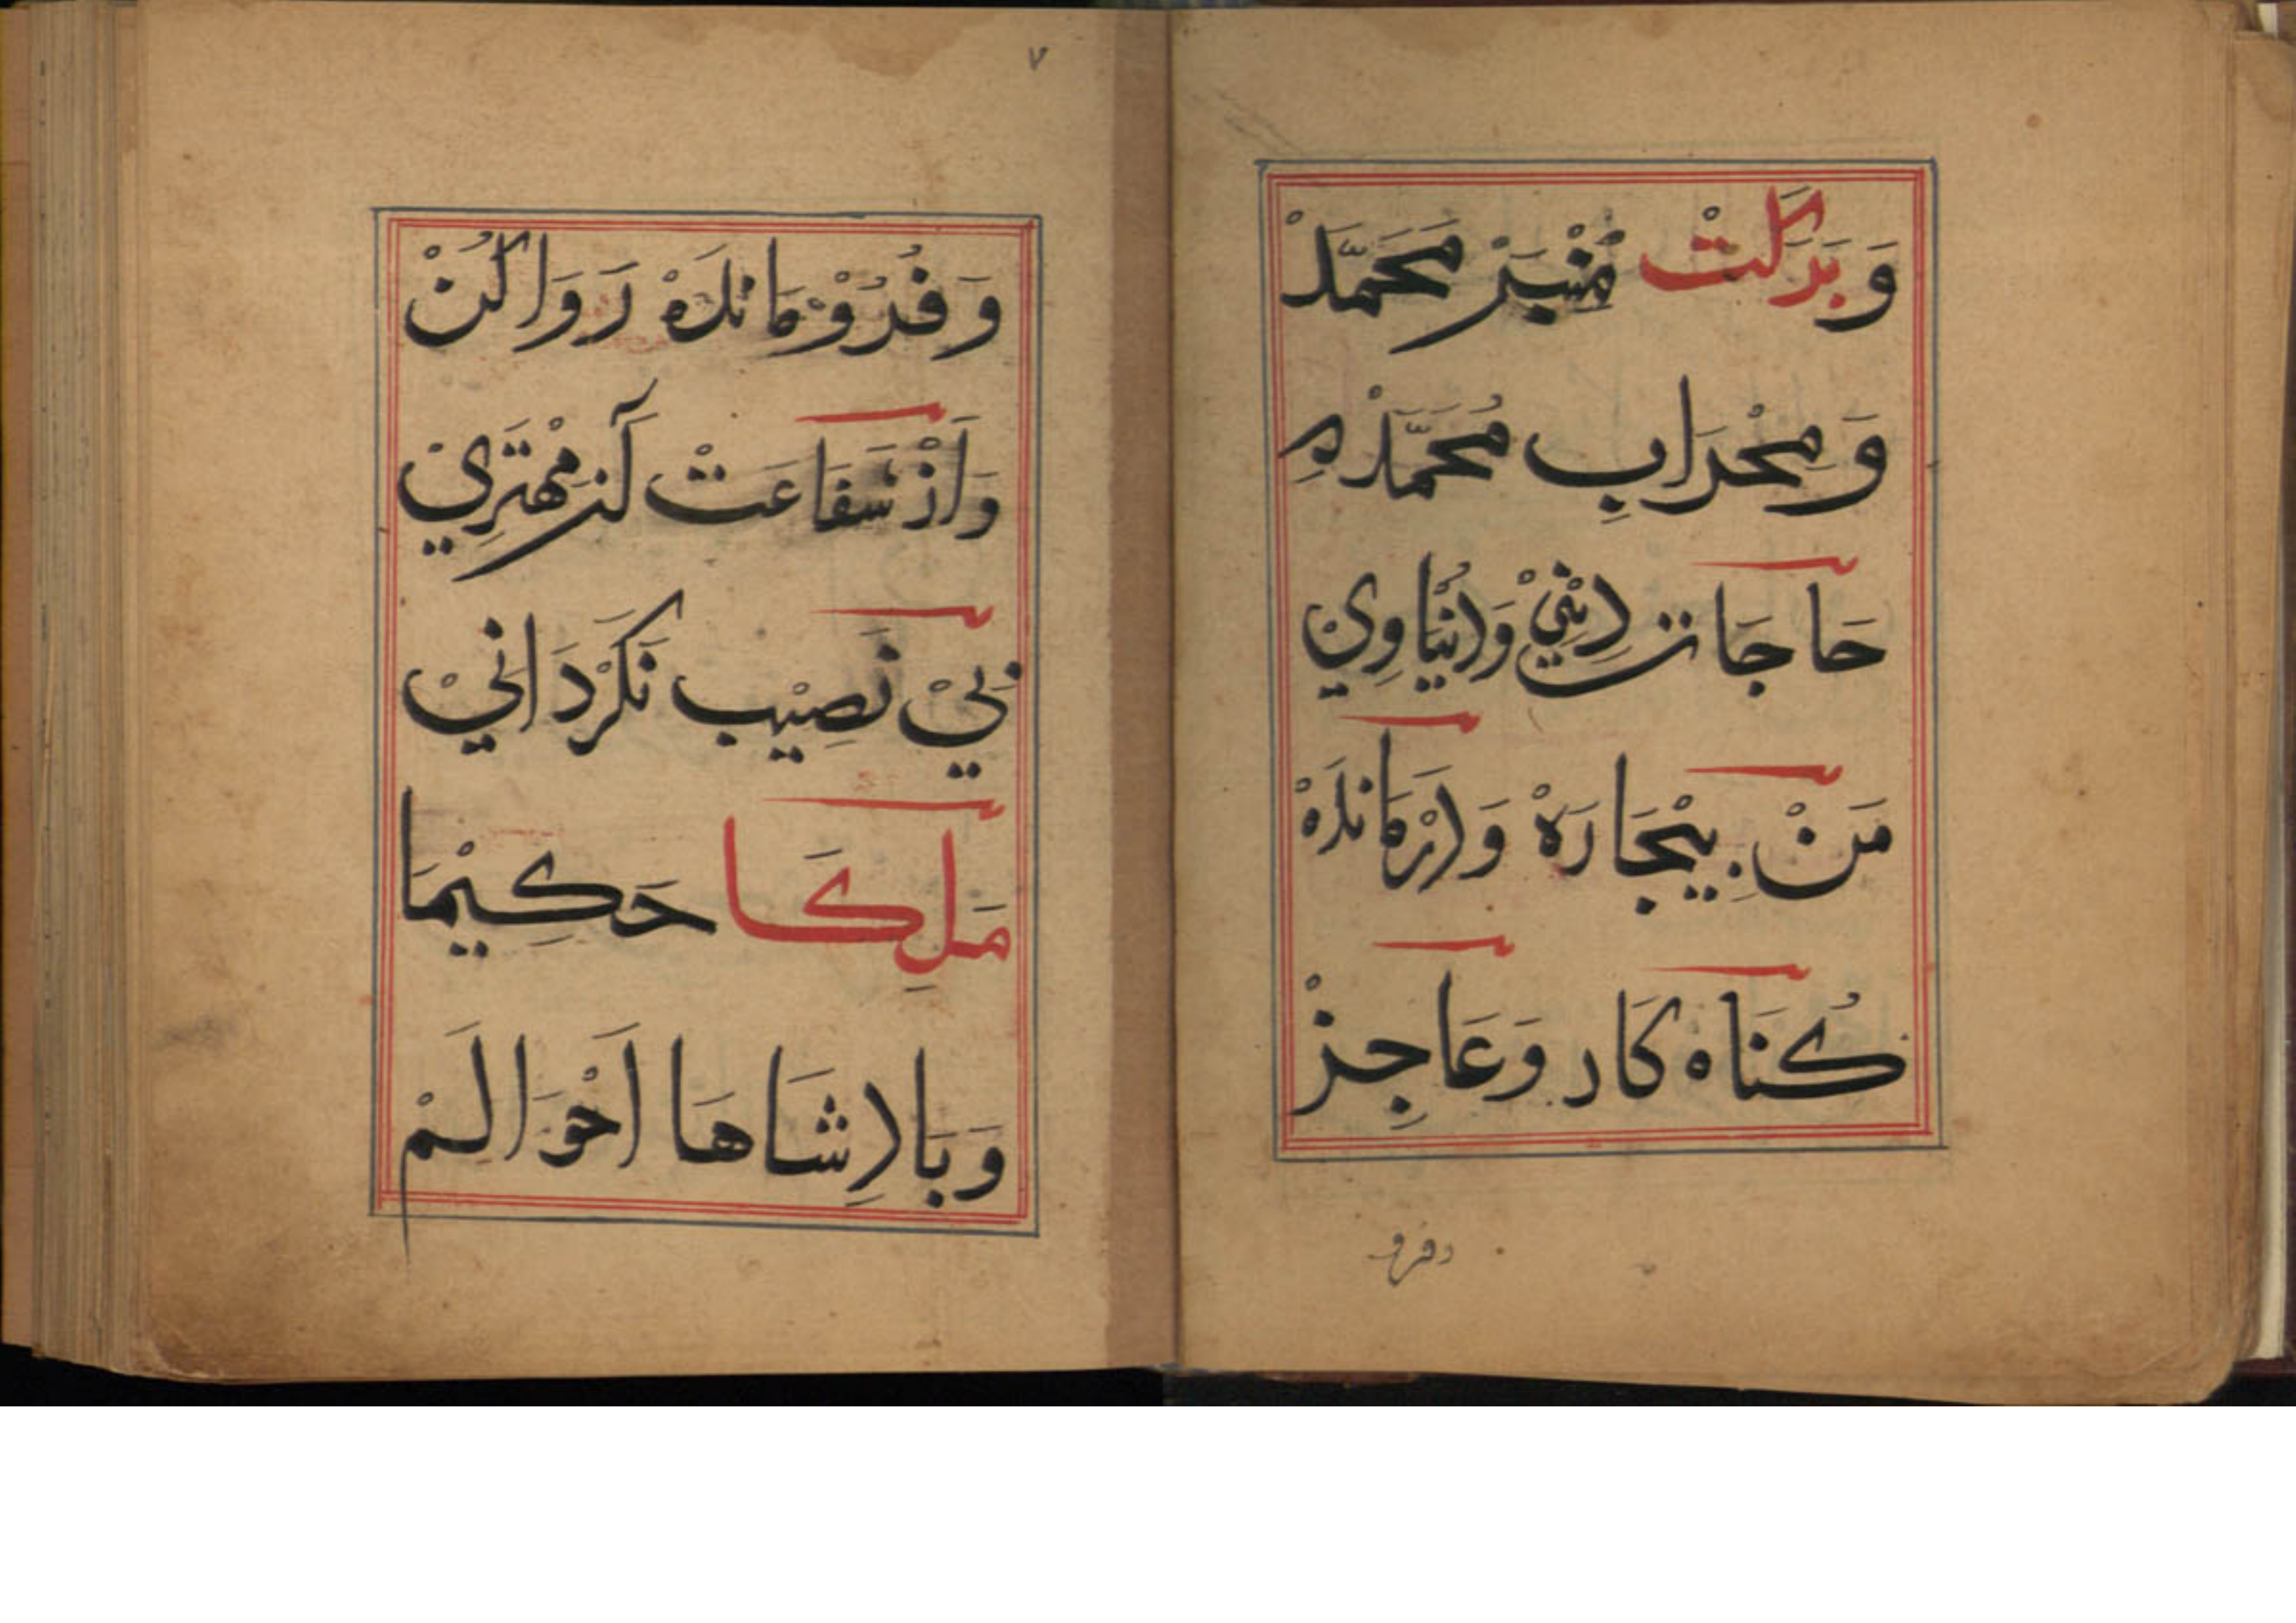 وَبَرَكَتْ مِنْبَرْ مُحَمَّدْ
وَمِحْرَابِ مُحَمَّدْ
حَاجَاتْ دِيْنِيْ وَدُنْيَاوِيْ
مَنْ بِيْچَارَهْ وَدَرْمَانْدَهْ
كُنَاهْ كَارْ وَعَاجِزْ
وفرو
٧
وَفُرُوْمَانْدَهْ رَوَا كُنْ
وَاَزْ شَفَاعَتْ آنْ مِهْتَرِيْ
بِيْ نَصِيْب نَكَرْدَانِيْ
مَلِكَا حَكِيْمَا
وَبَادِشَاهَا اَحْوَالَمْ